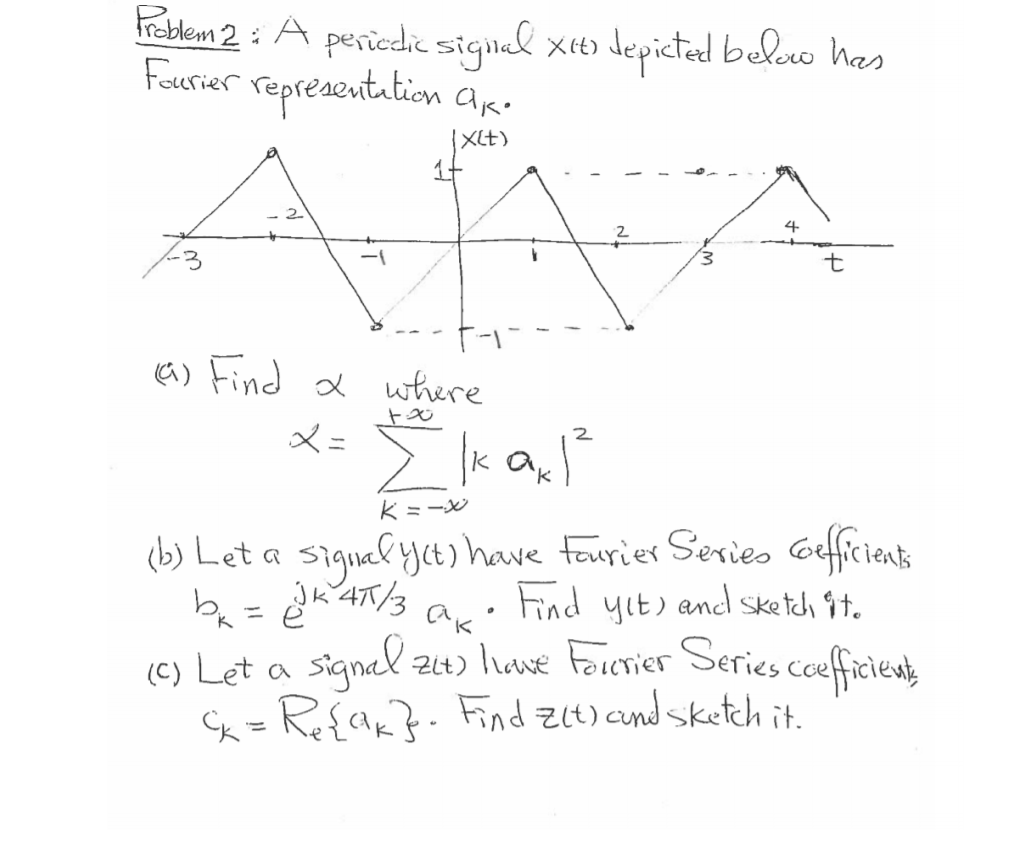 Problem 2 : A periodic signal x(t) depicted below has
Fourier representation aₖ.
x(t)
1
-3 -2 -1 1 2 3 4 t
-1
(a) Find α where
α = ∑_{k=-∞}^{+∞} |k aₖ|²
(b) Let a signal y(t) have Fourier Series Coefficients
bₖ = e^{jk4π/3} aₖ. Find y(t) and sketch it.
(c) Let a signal z(t) have Fourier Series coefficients
cₖ = Re{aₖ}. Find z(t) and sketch it.